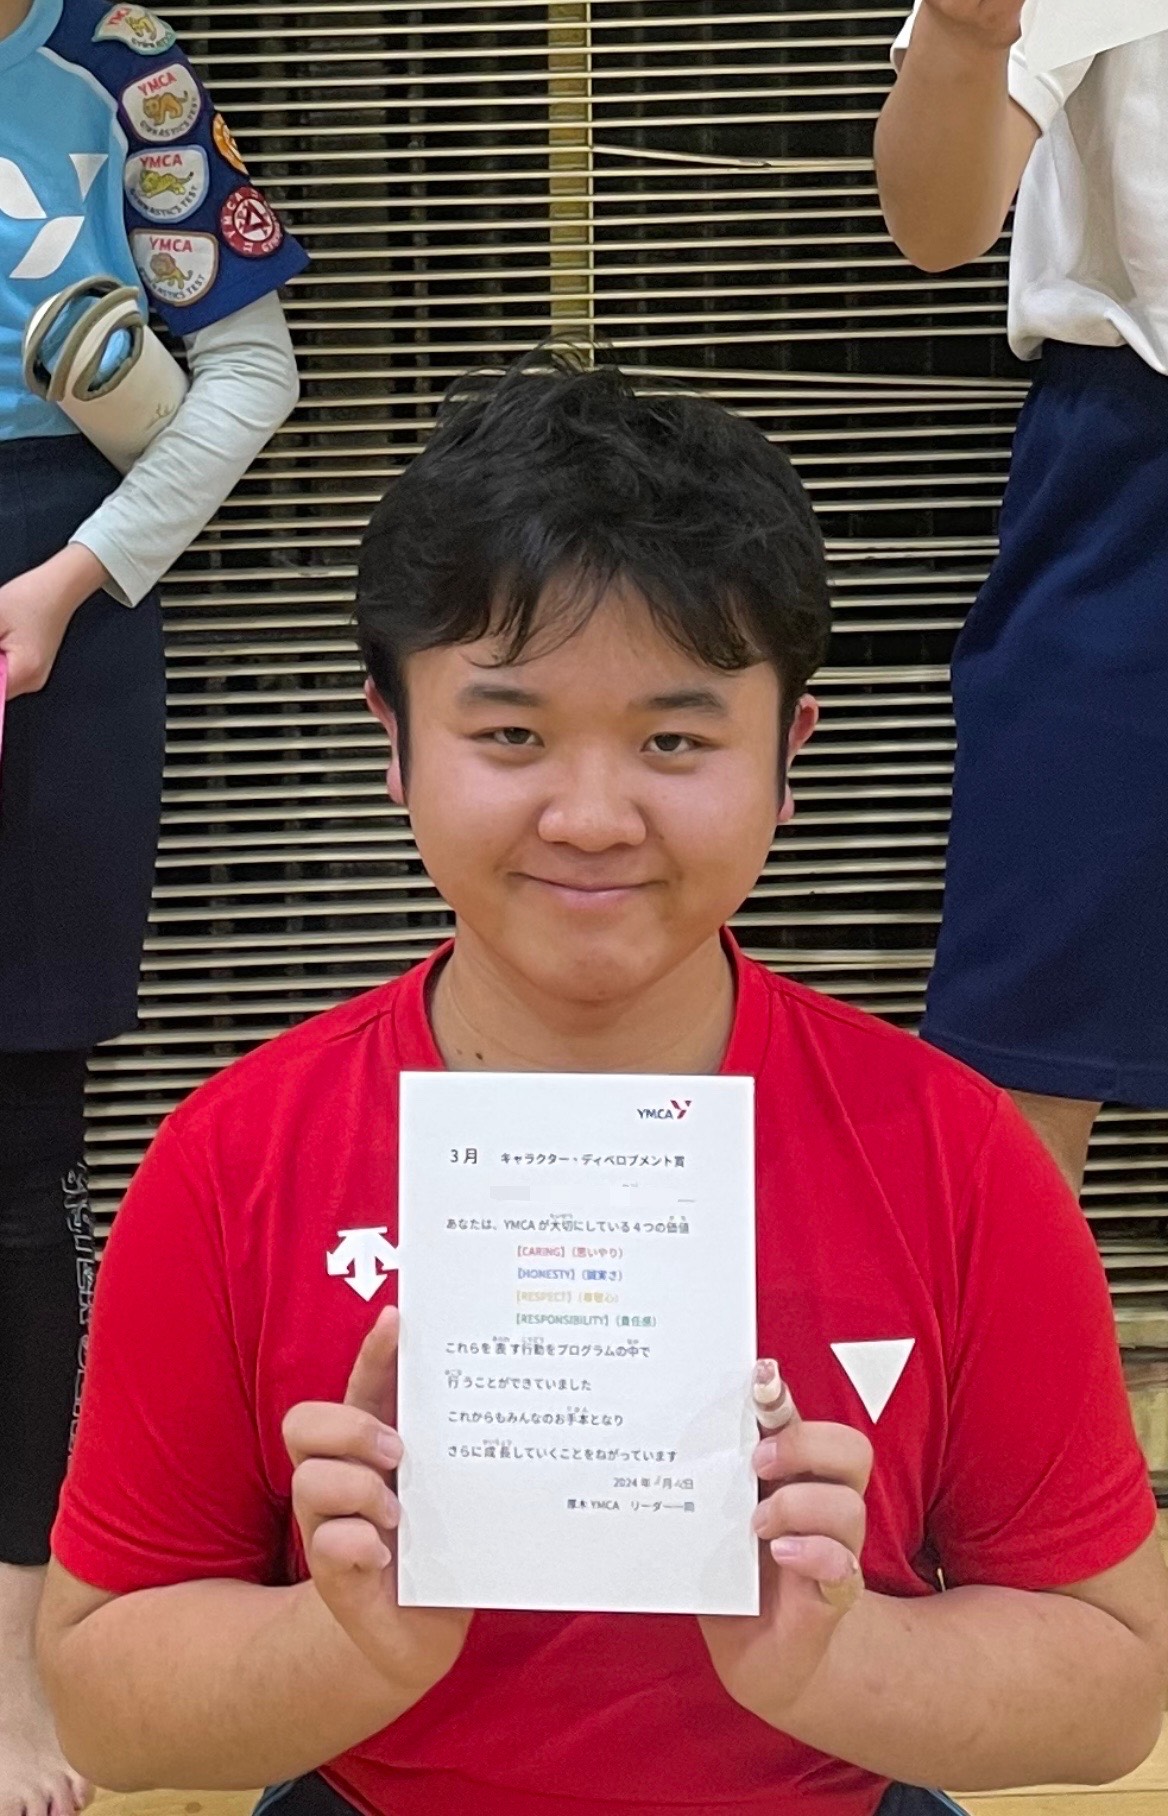 YMCA
YMCA
GYMNASTICS TEST
YMCA
GYMNASTICS TEST
YMCA
GYMNASTICS TEST
YMCA
YMCA
3月 キャラクター・ディベロプメント賞
あなたは、YMCAが大切にしている4つの価値
【CARING】(思いやり)
【HONESTY】(誠実さ)
【RESPECT】(尊敬心)
【RESPONSIBILITY】(責任感)
これらを表す行動をプログラムの中で
行うことができていました
これからもみんなのお手本となり
さらに成長していくことをねがっています
2024年 月 日
厚木YMCA リーダー一同